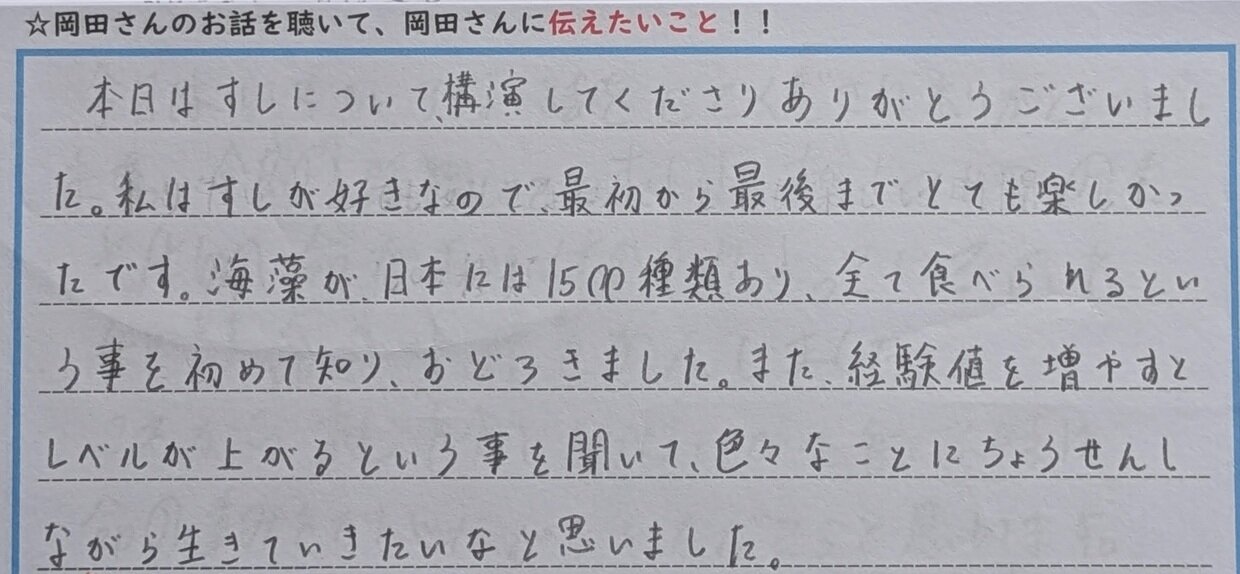 ☆岡田さんのお話を聴いて、岡田さんに伝えたいこと！！
本日はすしについて、構演してくださりありがとうございまし
た。私はすしが好きなので、最初から最後までとても楽しかっ
たです。海藻が、日本には1500種類あり、全て食べられるとい
う事を初めて知り、おどろきました。また、経験値を増やすと
レベルが上がるという事を聞いて、色々なことにちょうせんし
ながら生きていきたいなと思いました。